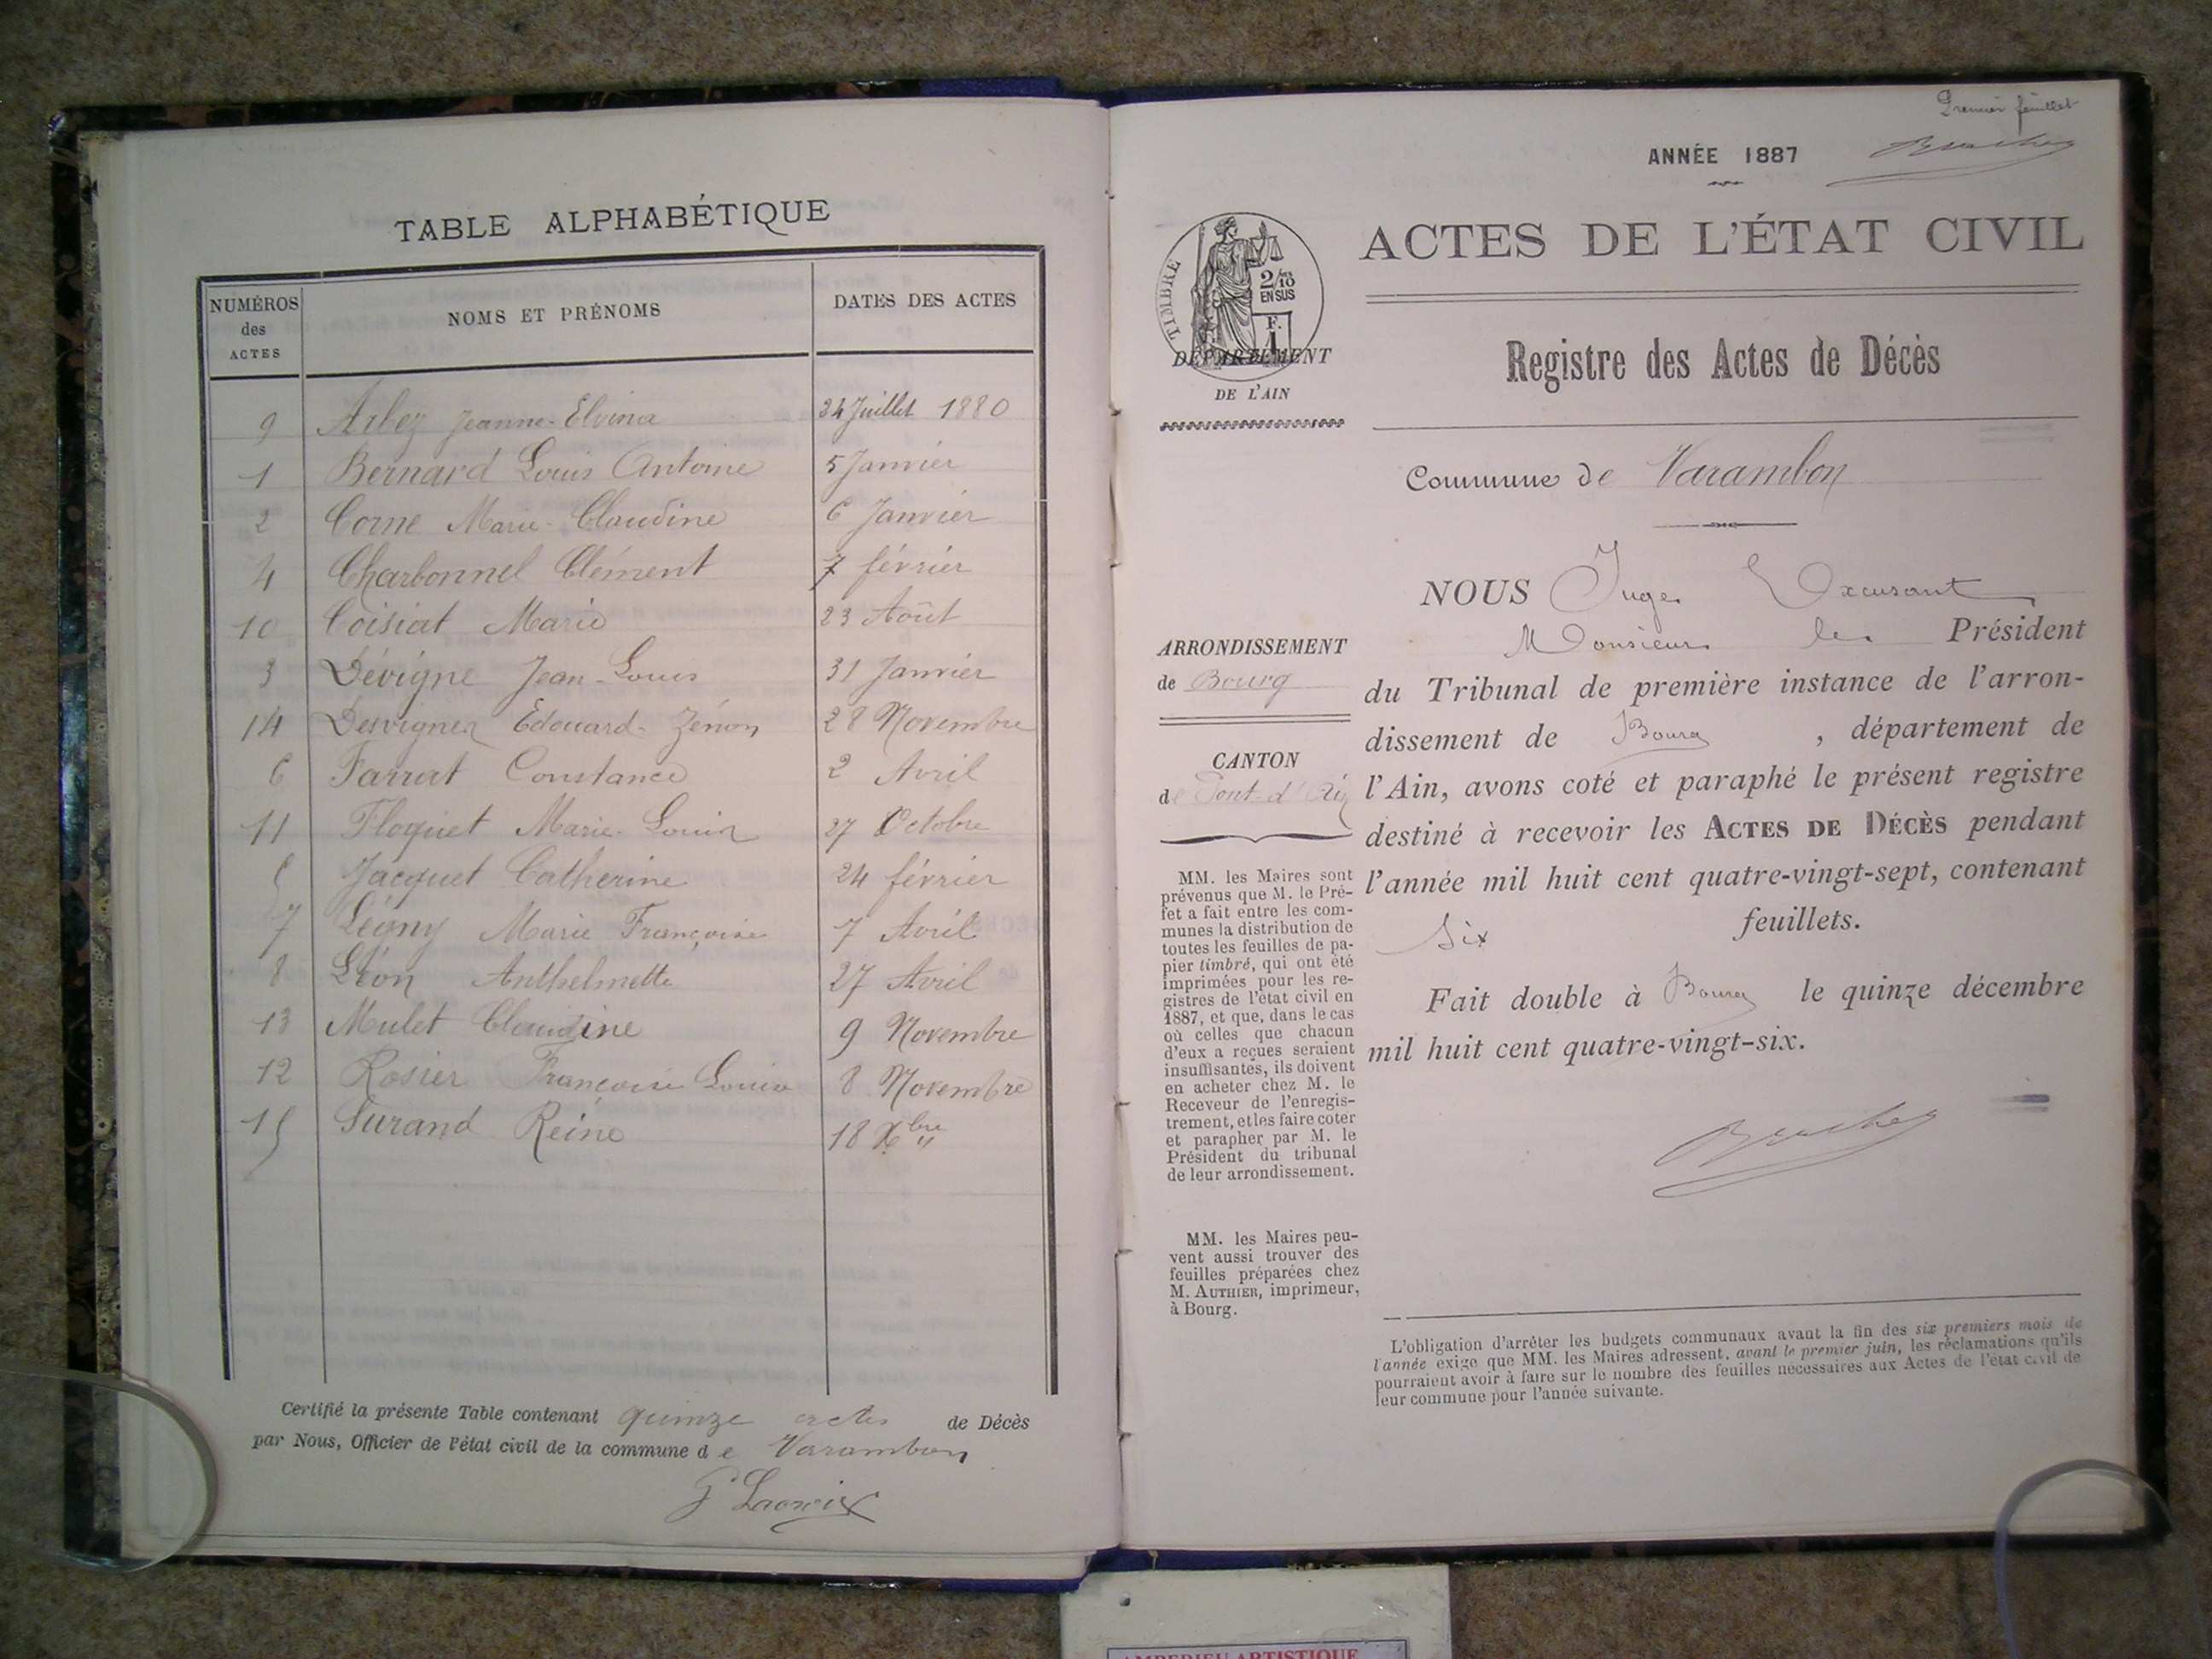 TABLE ALPHABÉTIQUE
NUMÉROS des ACTES
NOMS ET PRÉNOMS
DATES DES ACTES
9 Arbez Jeanne-Elvina 24 Juillet 1880
1 Bernard Louis Antoine 5 Janvier
2 Corne Marie-Claudine 6 Janvier
4 Charbonnel Clément 7 février
10 Coisiat Marie 23 Août
3 Dévigne Jean-Louis 31 Janvier
14 Desvignes Édouard-Zénon 28 Novembre
6 Farrat Constance 2 Avril
11 Floquet Marie-Louise 27 Octobre
5 Jacquet Catherine 24 février
7 Légny Marie Françoise 7 Avril
8 Léon Anthelmette 27 Avril
13 Mulet Claudine 9 Novembre
12 Rosier Françoise Louise 8 Novembre
15 Surand Reine 18 Xbre "
Certifié la présente Table contenant quinze actes de Décès
par Nous, Officier de l'état civil de la commune de Varambon
G Lacroix
Premier feuillet
ANNÉE 1887
ACTES DE L'ÉTAT CIVIL
TIMBRE
2/10 EN SUS
F. 1
DÉPARTEMENT
DE L'AIN
Registre des Actes de Décès
Commune de Varambon
ARRONDISSEMENT
de Bourg
CANTON
de Pont-d'Ain
MM. les Maires sont
prévenus que M. le Pré-
fet a fait entre les com-
munes la distribution de
toutes les feuilles de pa-
pier timbré, qui ont été
imprimées pour les re-
gistres de l'état civil en
1887, et que, dans le cas
où celles que chacun
d'eux a reçues seraient
insuffisantes, ils doivent
en acheter chez M. le
Receveur de l'enregis-
trement, et les faire coter
et parapher par M. le
Président du tribunal
de leur arrondissement.
MM. les Maires peu-
vent aussi trouver des
feuilles préparées chez
M. AUTHIER, imprimeur,
à Bourg.
NOUS Juge Excusant
Monsieur le Président
du Tribunal de première instance de l'arron-
dissement de Bourg, département de
l'Ain, avons coté et paraphé le présent registre
destiné à recevoir les ACTES DE DÉCÈS pendant
l'année mil huit cent quatre-vingt-sept, contenant
Six feuillets.
Fait double à Bourg le quinze décembre
mil huit cent quatre-vingt-six.
L'obligation d'arrêter les budgets communaux avant la fin des six premiers mois de
l'année exige que MM. les Maires adressent, avant le premier juin, les réclamations qu'ils
pourraient avoir à faire sur le nombre des feuilles nécessaires aux Actes de l'état civil de
leur commune pour l'année suivante.
AMBERIEU ARTISTIQUE